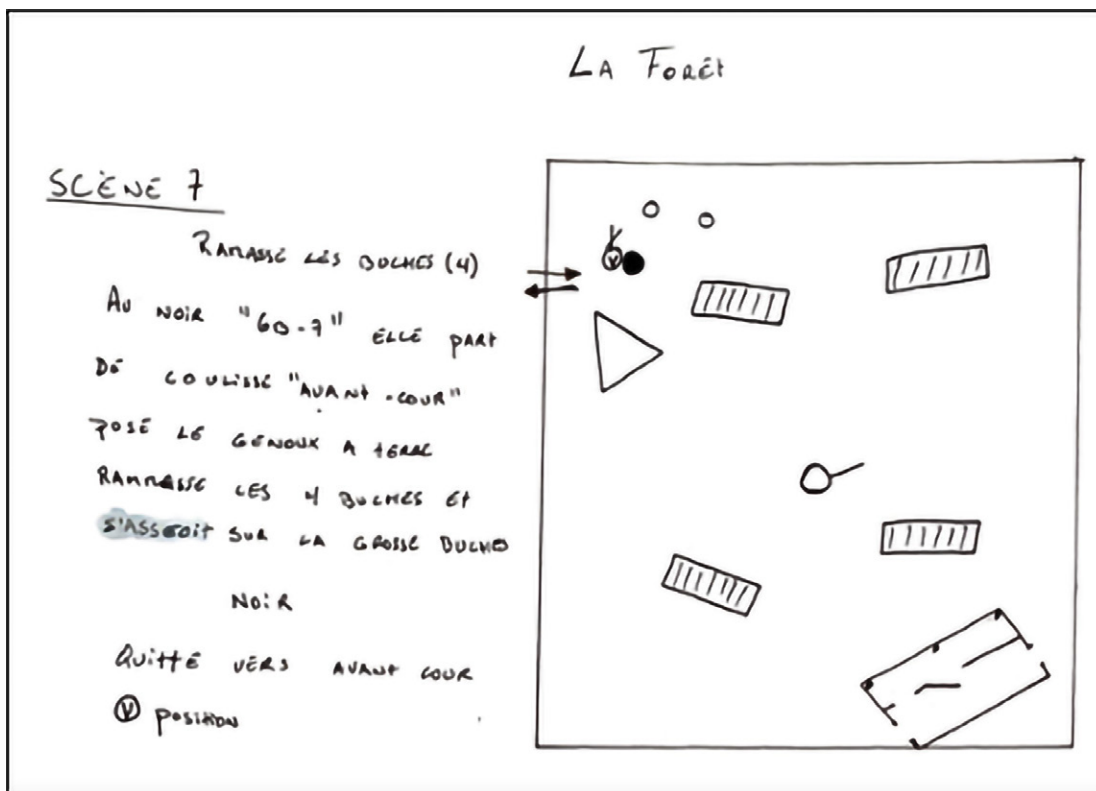 LA FORÊT
SCÈNE 7
RAMASSE LES BUCHES (4)
AU NOIR "60-7" ELLE PART
DE COULISSE "AVANT-COUR"
POSE LE GENOUX A TERRE
RAMMASSE LES 4 BUCHES ET
S'ASSEOIT SUR LA GROSSE BUCHES
NOIR
QUITTE VERS AVANT COUR
Ⓥ POSITION
V